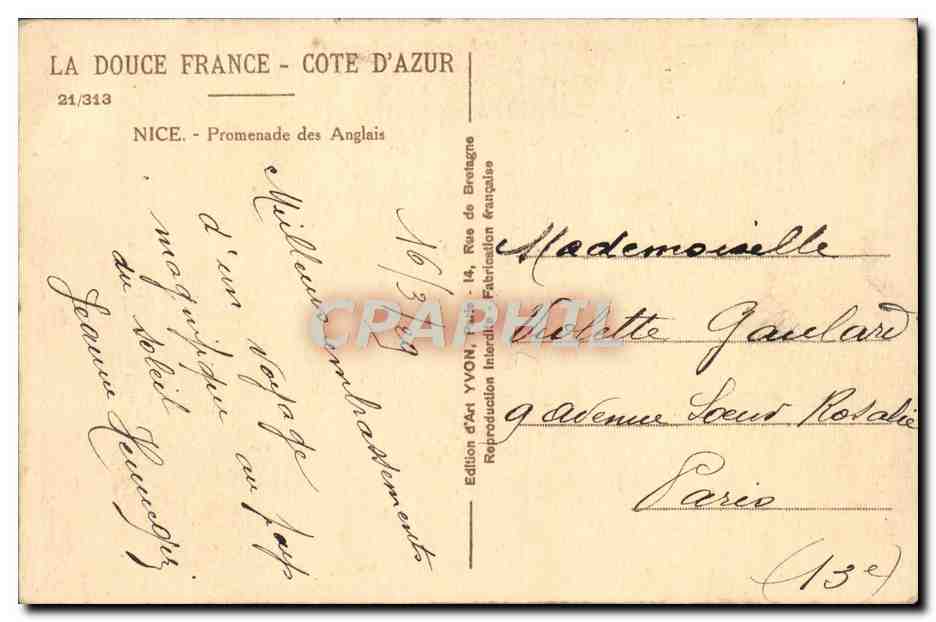 LA DOUCE FRANCE - COTE D'AZUR
21/313
NICE. - Promenade des Anglais
16/3/29
Meilleurs embrassements
d'un voyage au pays
magnifique
du soleil
Jeanne
Edition d'Art YVON, Paris - 14, Rue de Bretagne
Reproduction Interdite Fabrication française
CPAPHIL
Mademoiselle
Violette Gaulard
9 avenue Soeur Rosalie
Paris
(13e)